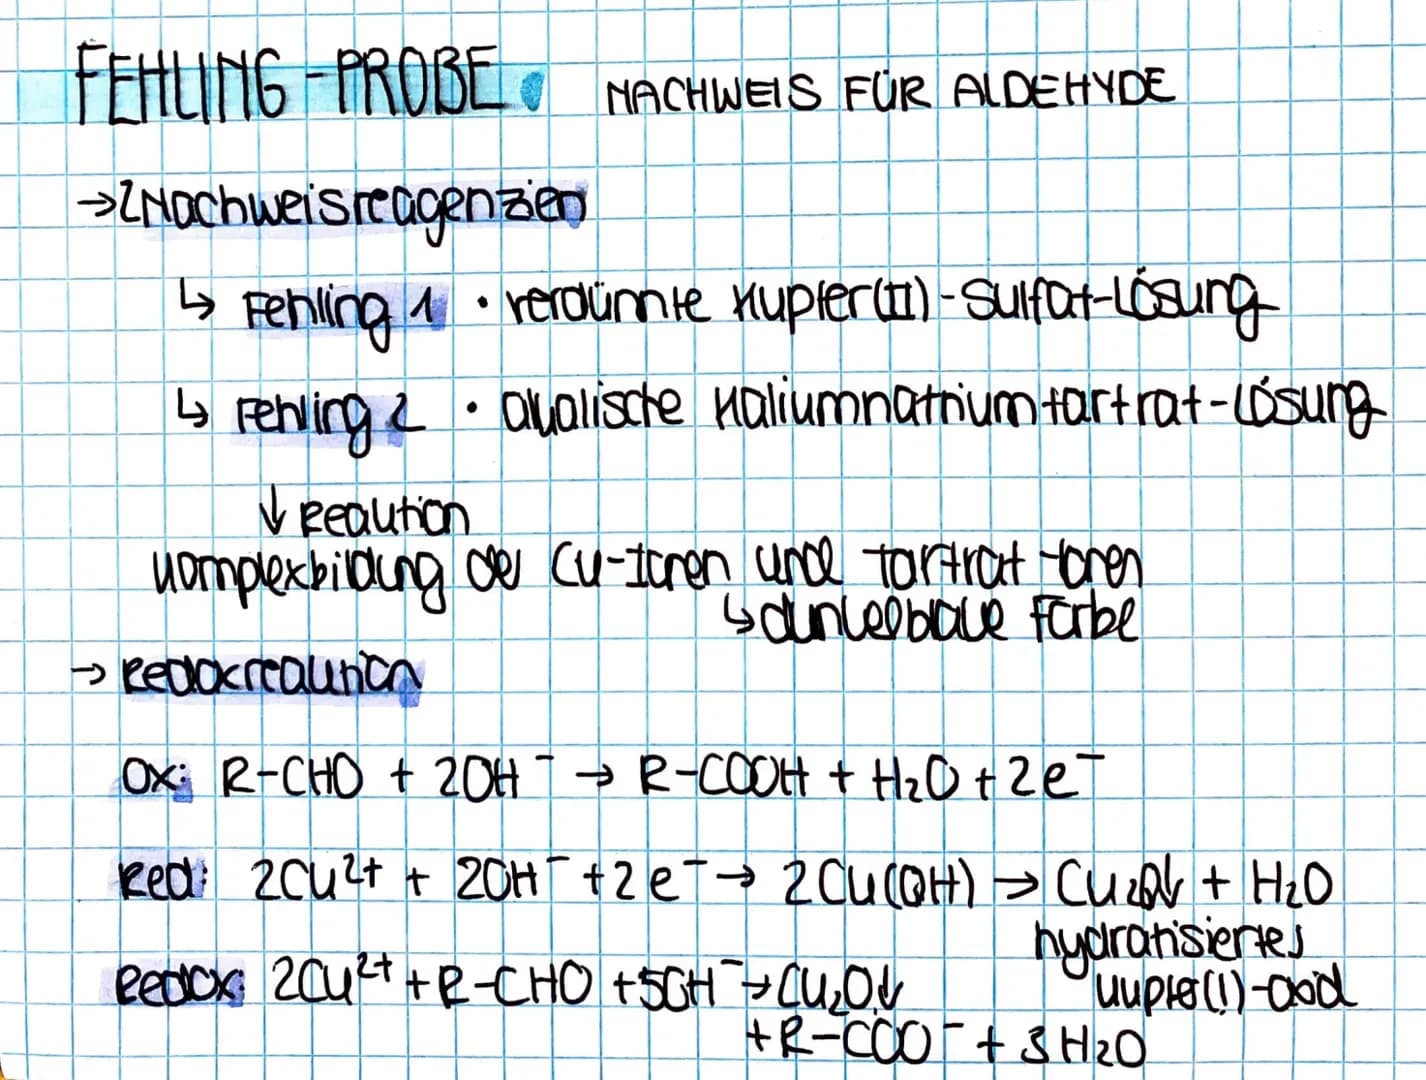 FEHLING-PROBE NACHWEIS FÜR ALDEHYDE
→2 Nachweisreagenzien
↳ Fehling 1 • verdünnte Kupfer(II)-Sulfat-Lösung
↳ Fehling 2 • alkalische Kaliumnatriumtartrat-Lösung
↓ Reaktion
Komplexbildung der Cu-Ionen und Tartrat-Ionen
↳ dunkelblaue Farbe
→ Redoxreaktion
Ox: R-CHO + 2OH⁻ → R-COOH + H₂O + 2e⁻
Red: 2Cu²⁺ + 2OH⁻ + 2e⁻ → 2Cu(OH) → Cu₂O↓ + H₂O
hydratisiertes
Kupfer(I)-oxid
Redox: 2Cu²⁺ + R-CHO + 5OH⁻ → Cu₂O↓
+ R-COO⁻ + 3H₂O